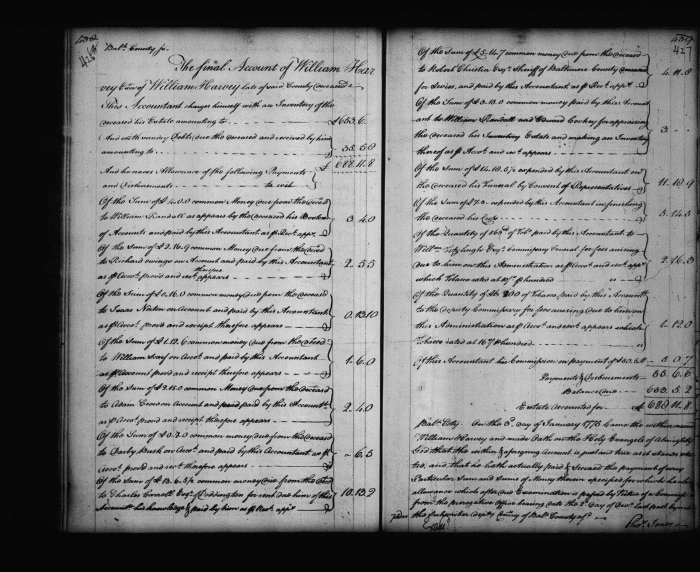 426
Balt. County, ss.
The final Account of William Har
vey Exr. of William Harvey late of said County deceased.
This Accountant charges himself with an Inventory of the
deceased his Estate amounting to £653.6.
And with sundry Debts due the deceased and received by him
amounting to 35.5.0
£ 688.11.8
And he craves Allowance of the following Payments
and Disbursments to wit
Of the Sum of £4.0.0 common Money due from the deceased
to William Randall as appears by the deceased his Books
of Accounts and paid by this Accountant as p Rect. appr. 3.4.0
Of the Sum of £3.16.9 common Money due from the deced
to Richard Owings on Account and paid by this Accountant
as p Acct. proved and rect. thereupon appears 2.5.5
Of the Sum of £0.16.0 common money due from the deceased
to Isaac on Account and paid by this Accountant
as p Acct. proved and receipt therefore appears 0.13.10
Of the Sum of £1.12.6 common money due from the deced
to William on Acct. and paid by this Accountant
as p Account proved and receipt therefore appears 1.6.0
Of the Sum of £2.15.0 common Money due from the deceased
to Adam on Account and paid by this Accountt.
as p Acct. proved and receipt therefore appears 2.4.0
Of the Sum of common money due from the deceased
to Darby on Acct. and paid by this Accountant as p
Acct. proved and rect. therefore appears 6.5
Of the Sum of common money due from the deced
to Charles Carroll Esqr. for rent due him of this
Accountt. his knowledge & paid by him as p Rect. appr. 10.13.9
427
Of the Sum of £5.14.7 common money due from the deceased
to Robert Christie Esqr. Sheriff of Baltimore County
for Levies, and paid by this Accountant as p Rect. appr. 4.11.8
Of the Sum of £3.15.0 common money paid by this Account
ant to William Randall and Edward Cockey for appraising
the deceased his Inventory Estate and making an Inventory
thereof as p Acct. and rect. appears 3
Of the Sum of £14.18.5½ expended by this Accountant on
the deceased his Funeral by Consent of Representatives 11.18.9
Of the Sum of expended by this Accountant in furnishing
the deceased his 5.14.5
Of the Quantity of of Tobo. paid by this Accountant to
Willm. Fitzhugh Esqr. Commissary General for fees arising
due to him on this Administration as p Acct. and rect. appr.
which Tobacco rated at p hundred 2.16.3
Of the Quantity of lb 200 of Tobacco paid by this Accountt.
to the deputy Commissary for fees arising due to him on
this Administration as p Acct. and rect. appears which
Tobacco rated at p hundred 1.12.0
Of this Accountant his Commission on payment of 5.0.7
Payments & Disbursments 55.6.6
Balance due 633.5.2
Estate Accounted for £688.11.8
Balt. City. On the 3d. day of January 1776 Came the within named
William Harvey and made Oath on the Holy Evangels of Almighty
God that the within & foregoing Account is just and true as it stands sta
ted, and that he hath actually paid & Secured the payment of every
Particular Sum and Sums of Money therein specified for which he claims
allowance which after due Examination is passed by Virtue of a Commission
from the prerogative office bearing date the day of last past by me
the Subscriber deputy Comry. of Balt. County afd.
Thos. Jones